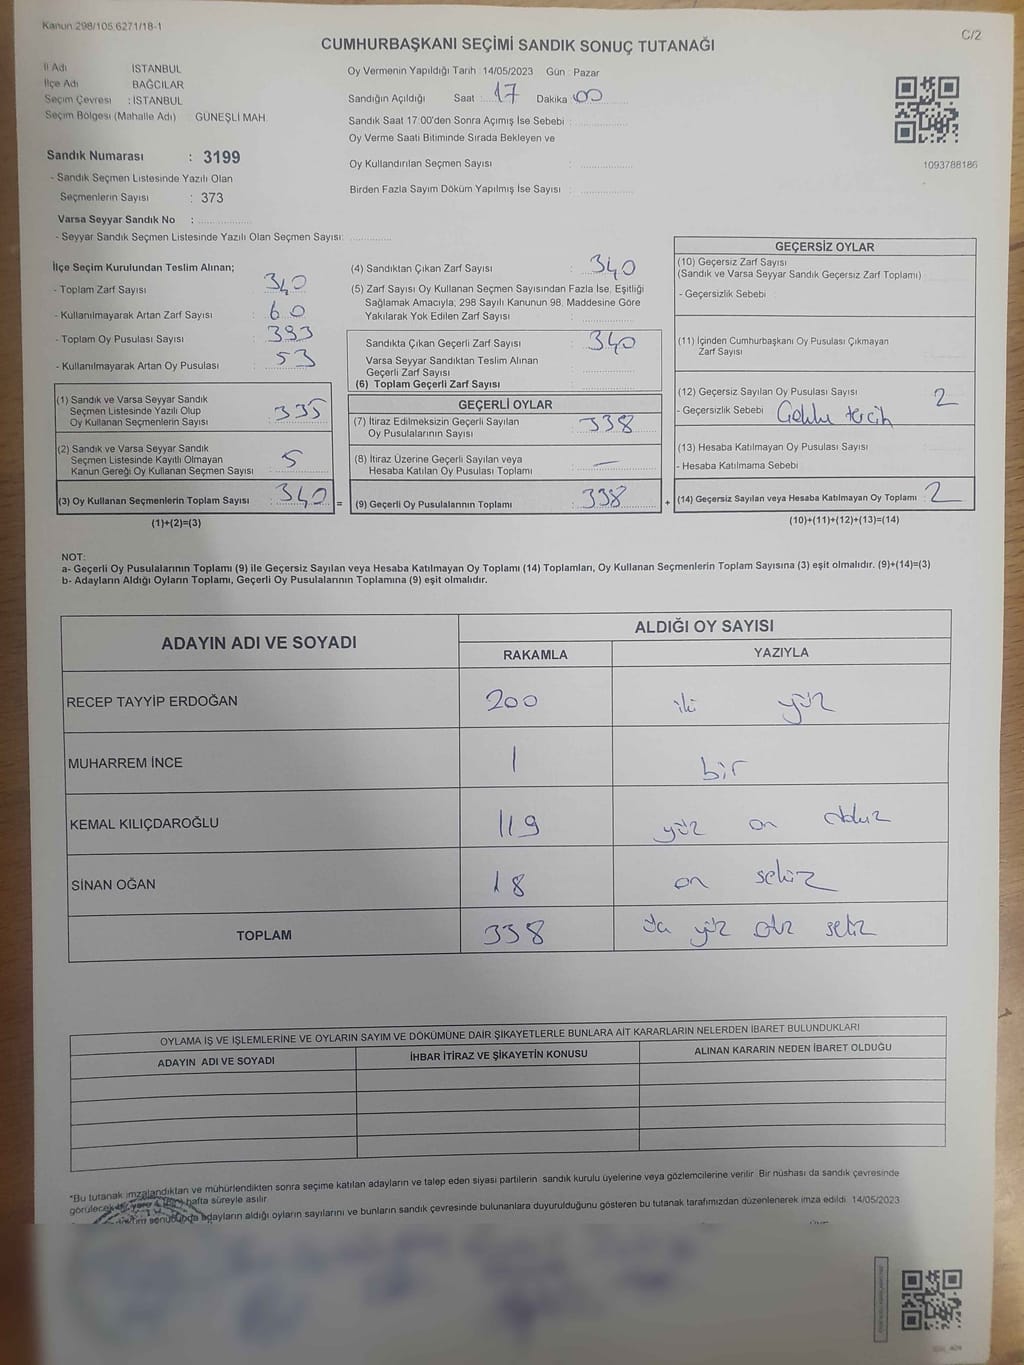 Kanun 298/105,6271/18-1
C/2
CUMHURBAŞKANI SEÇİMİ SANDIK SONUÇ TUTANAĞI
İl Adı İSTANBUL
İlçe Adı BAĞCILAR
Seçim Çevresi : İSTANBUL
Seçim Bölgesi (Mahalle Adı) : GÜNEŞLİ MAH.
Sandık Numarası : 3199
- Sandık Seçmen Listesinde Yazılı Olan
Seçmenlerin Sayısı : 373
Varsa Seyyar Sandık No :
- Seyyar Sandık Seçmen Listesinde Yazılı Olan Seçmen Sayısı:
Oy Vermenin Yapıldığı Tarih : 14/05/2023 Gün : Pazar
Sandığın Açıldığı Saat : 17 Dakika 00
Sandık Saat 17:00'den Sonra Açımış İse Sebebi :
Oy Verme Saati Bitiminde Sırada Bekleyen ve
Oy Kullandırılan Seçmen Sayısı :
Birden Fazla Sayım Döküm Yapılmış İse Sayısı :
1093788186
İlçe Seçim Kurulundan Teslim Alınan;
- Toplam Zarf Sayısı : 340
- Kullanılmayarak Artan Zarf Sayısı : 60
- Toplam Oy Pusulası Sayısı : 393
- Kullanılmayarak Artan Oy Pusulası : 53
(1) Sandık ve Varsa Seyyar Sandık
Seçmen Listesinde Yazılı Olup
Oy Kullanan Seçmenlerin Sayısı : 335
(2) Sandık ve Varsa Seyyar Sandık
Seçmen Listesinde Kayıtlı Olmayan
Kanun Gereği Oy Kullanan Seçmen Sayısı : 5
(3) Oy Kullanan Seçmenlerin Toplam Sayısı : 340 =
(1)+(2)=(3)
(4) Sandıktan Çıkan Zarf Sayısı : 340
(5) Zarf Sayısı Oy Kullanan Seçmen Sayısından Fazla İse, Eşitliği
Sağlamak Amacıyla, 298 Sayılı Kanunun 98. Maddesine Göre
Yakılarak Yok Edilen Zarf Sayısı :
Sandıkta Çıkan Geçerli Zarf Sayısı : 340
Varsa Seyyar Sandıktan Teslim Alınan
Geçerli Zarf Sayısı :
(6) Toplam Geçerli Zarf Sayısı :
GEÇERLİ OYLAR
(7) İtiraz Edilmeksizin Geçerli Sayılan
Oy Pusulalarının Sayısı : 338
(8) İtiraz Üzerine Geçerli Sayılan veya
Hesaba Katılan Oy Pusulası Toplamı : —
(9) Geçerli Oy Pusulalarının Toplamı : 338 +
GEÇERSİZ OYLAR
(10) Geçersiz Zarf Sayısı
(Sandık ve Varsa Seyyar Sandık Geçersiz Zarf Toplamı)
- Geçersizlik Sebebi
(11) İçinden Cumhurbaşkanı Oy Pusulası Çıkmayan
Zarf Sayısı
(12) Geçersiz Sayılan Oy Pusulası Sayısı 2
- Geçersizlik Sebebi tercih
(13) Hesaba Katılmayan Oy Pusulası Sayısı
- Hesaba Katılmama Sebebi
(14) Geçersiz Sayılan veya Hesaba Katılmayan Oy Toplamı : 2
(10)+(11)+(12)+(13)=(14)
NOT:
a- Geçerli Oy Pusulalarının Toplamı (9) ile Geçersiz Sayılan veya Hesaba Katılmayan Oy Toplamı (14) Toplamları, Oy Kullanan Seçmenlerin Toplam Sayısına (3) eşit olmalıdır. (9)+(14)=(3)
b- Adayların Aldığı Oyların Toplamı, Geçerli Oy Pusulalarının Toplamına (9) eşit olmalıdır.
ADAYIN ADI VE SOYADI
ALDIĞI OY SAYISI
RAKAMLA YAZIYLA
RECEP TAYYİP ERDOĞAN 200 iki yüz
MUHARREM İNCE 1 bir
KEMAL KILIÇDAROĞLU 119 yüz on dokuz
SİNAN OĞAN 18 on sekiz
TOPLAM 338 üç yüz otuz sekiz
OYLAMA İŞ VE İŞLEMLERİNE VE OYLARIN SAYIM VE DÖKÜMÜNE DAİR ŞİKAYETLERLE BUNLARA AİT KARARLARIN NELERDEN İBARET BULUNDUKLARI
ADAYIN ADI VE SOYADI İHBAR İTİRAZ VE ŞİKAYETİN KONUSU ALINAN KARARIN NEDEN İBARET OLDUĞU
*Bu tutanak imzalandıktan ve mühürlendikten sonra seçime katılan adayların ve talep eden siyasi partilerin sandık kurulu üyelerine veya gözlemcilerine verilir. Bir nüshası da sandık çevresinde
görülecek bir yere hafta süreyle asılır.
sonucunda adayların aldığı oyların sayılarını ve bunların sandık çevresinde bulunanlara duyurulduğunu gösteren bu tutanak tarafımızdan düzenlenerek imza edildi. 14/05/2023